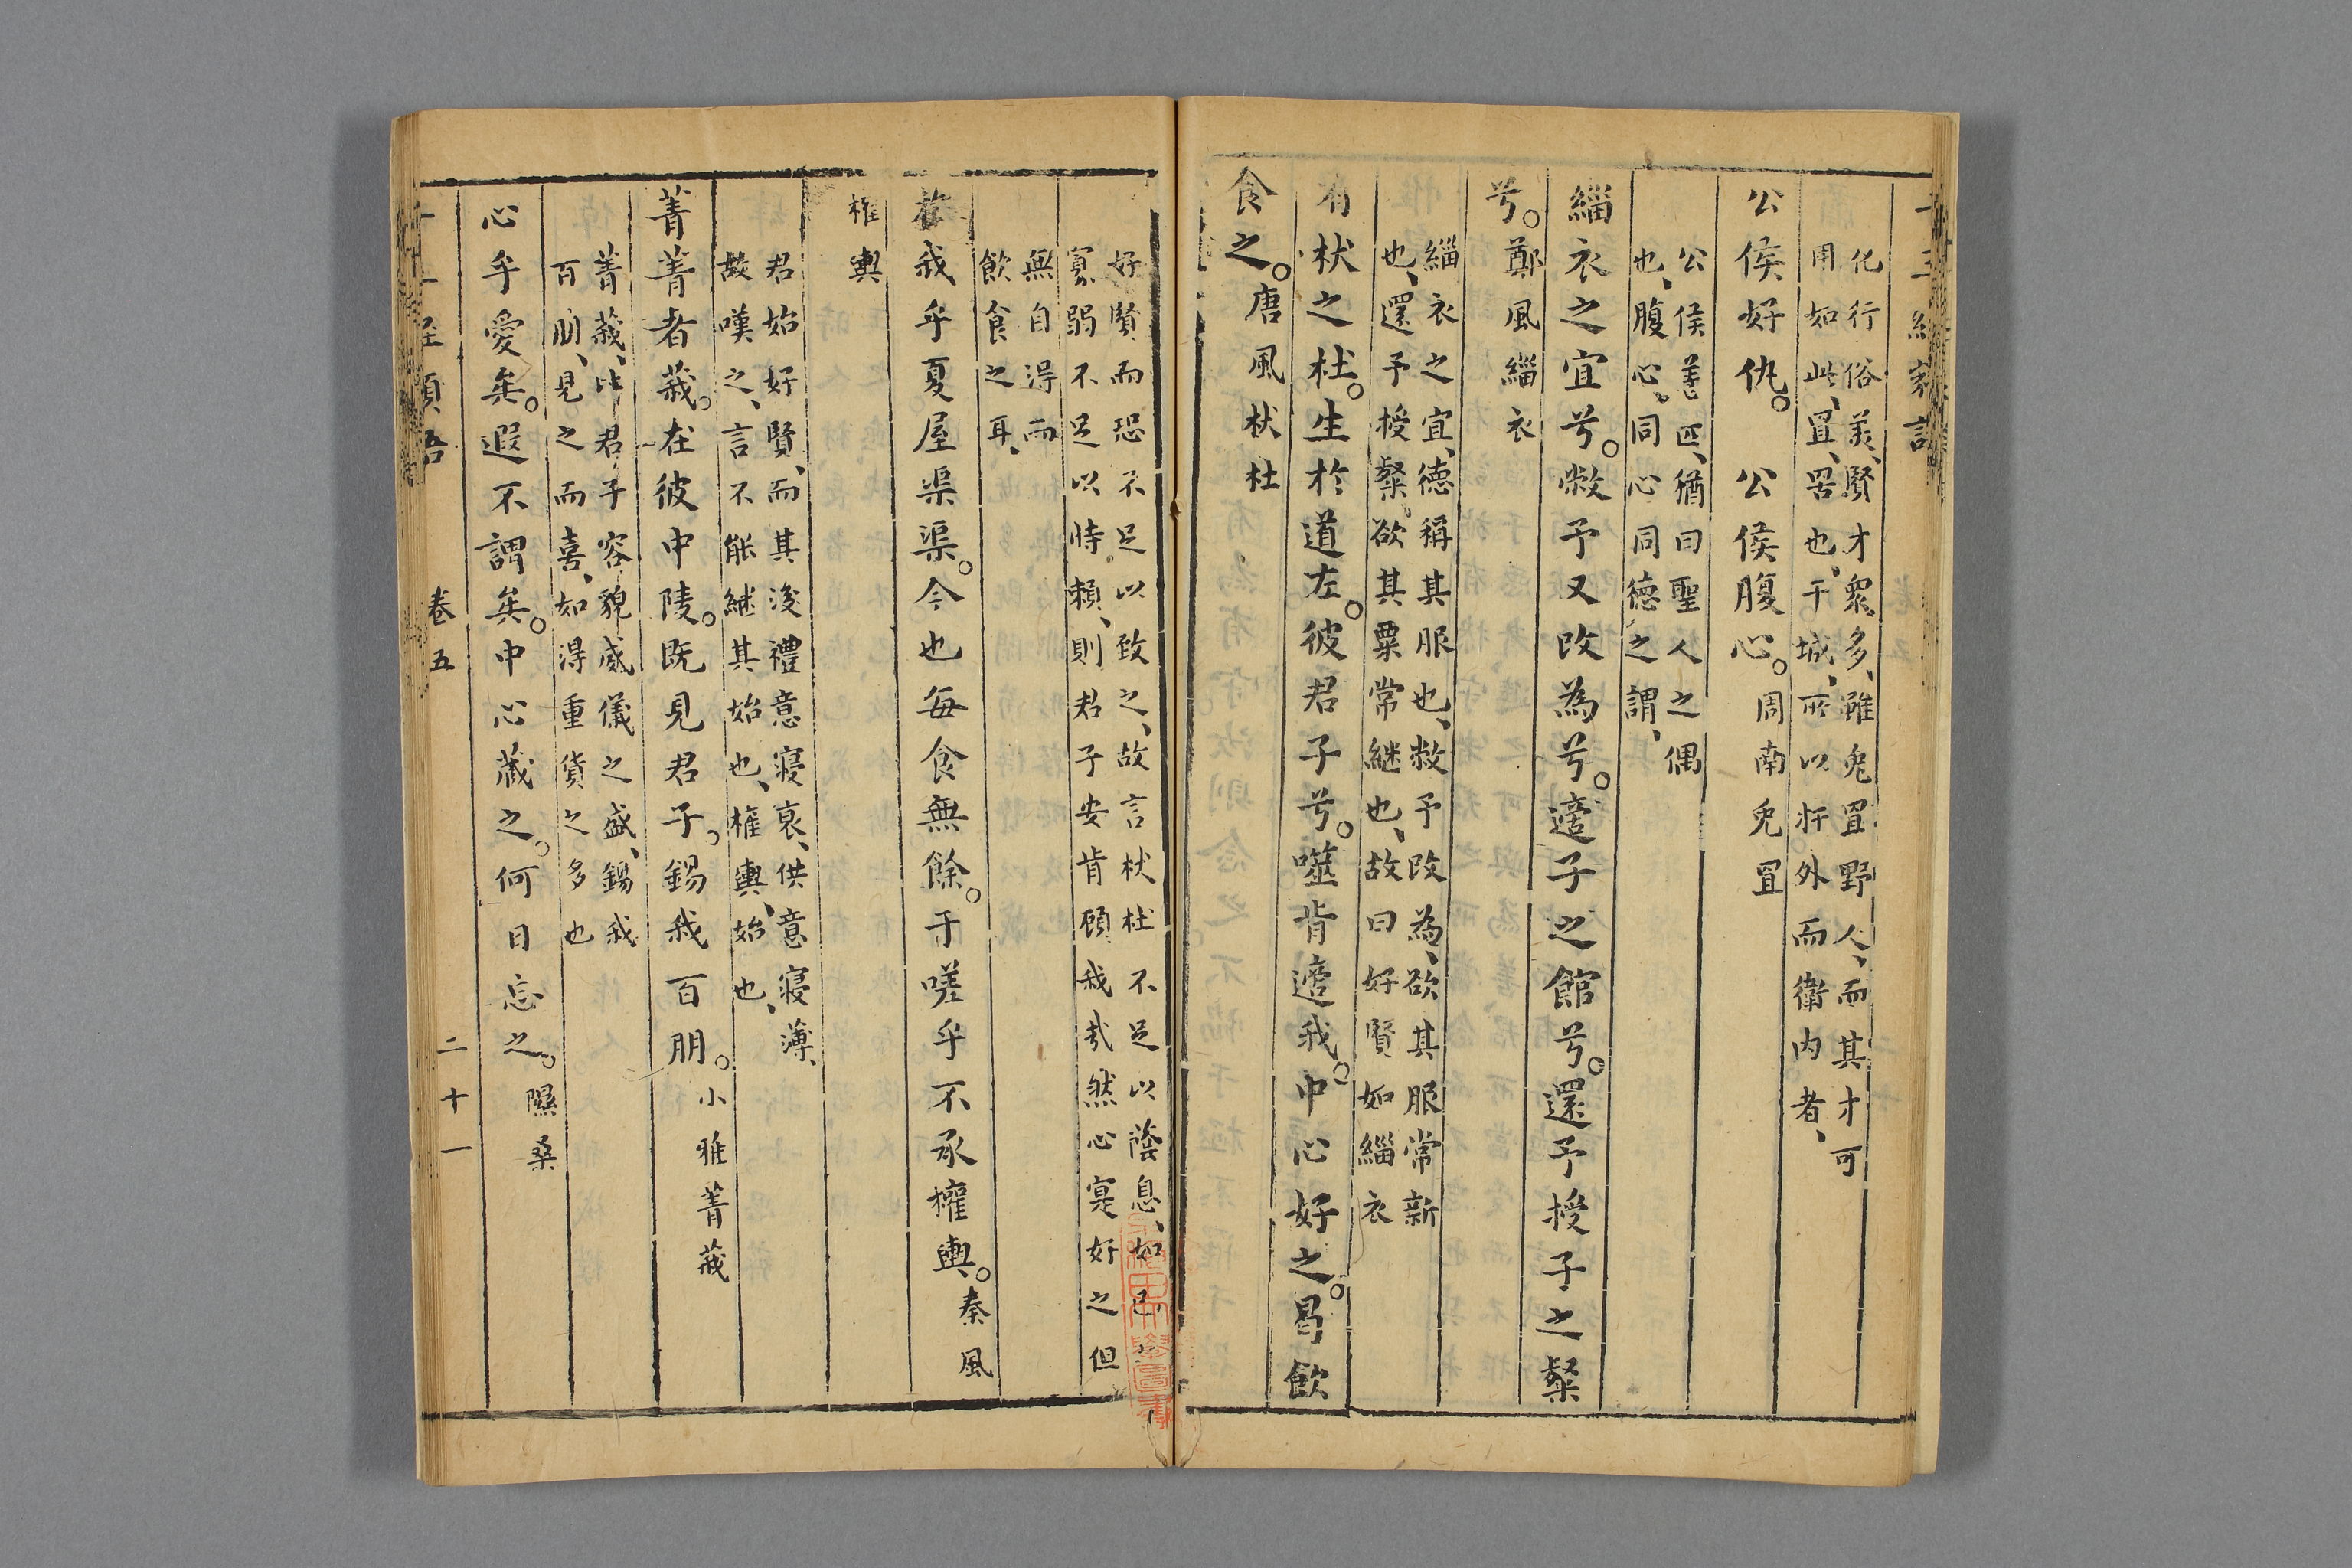 化行俗美、賢才衆多、雖兔罝野人、而其才可
用如此、罝、罟也、干城、所以扞外而衛内者、
公侯好仇。　公侯腹心。周南兔罝
公侯善匹、猶曰聖人之偶
也、腹心、同心同德之謂、
緇衣之宜兮。敝予又改為兮。適子之館兮。還予授子之粲
兮。鄭風緇衣
緇衣之宜、德稱其服也、敝予改為、欲其服常新
也、還予授粲、欲其粟常継也、故曰好賢如緇衣
有杕之杜。生於道左。彼君子兮。噬肯適我。中心好之。曷飲
食之。唐風杕杜
好賢而恐不足以致之、故言杕杜不足以蔭息、如己
寡弱不足以恃頼、則君子安肯顧我哉然心寔好之但
無自得而
飲食之耳、
於我乎夏屋渠渠。今也每食無餘。于嗟乎不承權輿。秦風
權輿
君始好賢、而其後禮意寖衰、供意寖薄、
故嘆之、言不能継其始也、權輿、始也、
菁菁者莪。在彼中陵。既見君子。錫我百朋。小雅菁莪
菁莪、比君子容貌威儀之盛、錫我
百朋、見之而喜、如得重貨之多也
心乎愛矣。遐不謂矣。中心藏之。何日忘之。隰桑
卷五　二十一